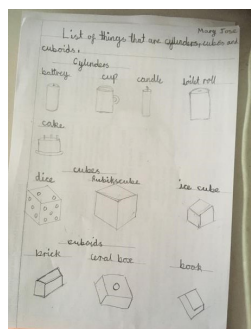 Mary Jose
List of things that are cylinders, cubes and
cuboids.
Cylinders
battery cup candle toilet roll
cake
cubes
dice Rubikscube ice cube
cuboids
brick cereal box book